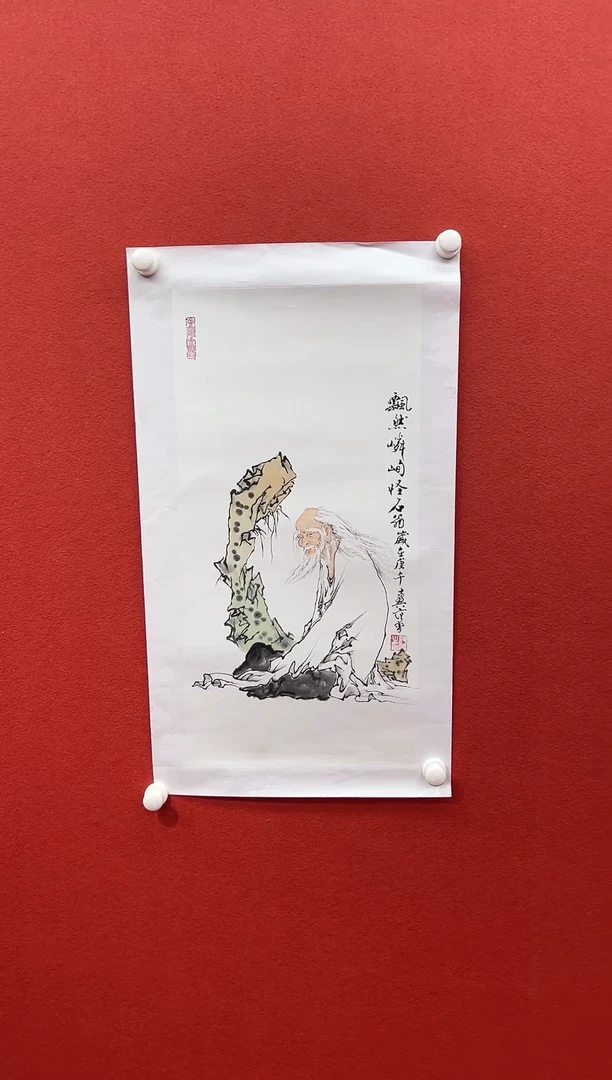 飄然嶙峋怪石翁歲在庚午